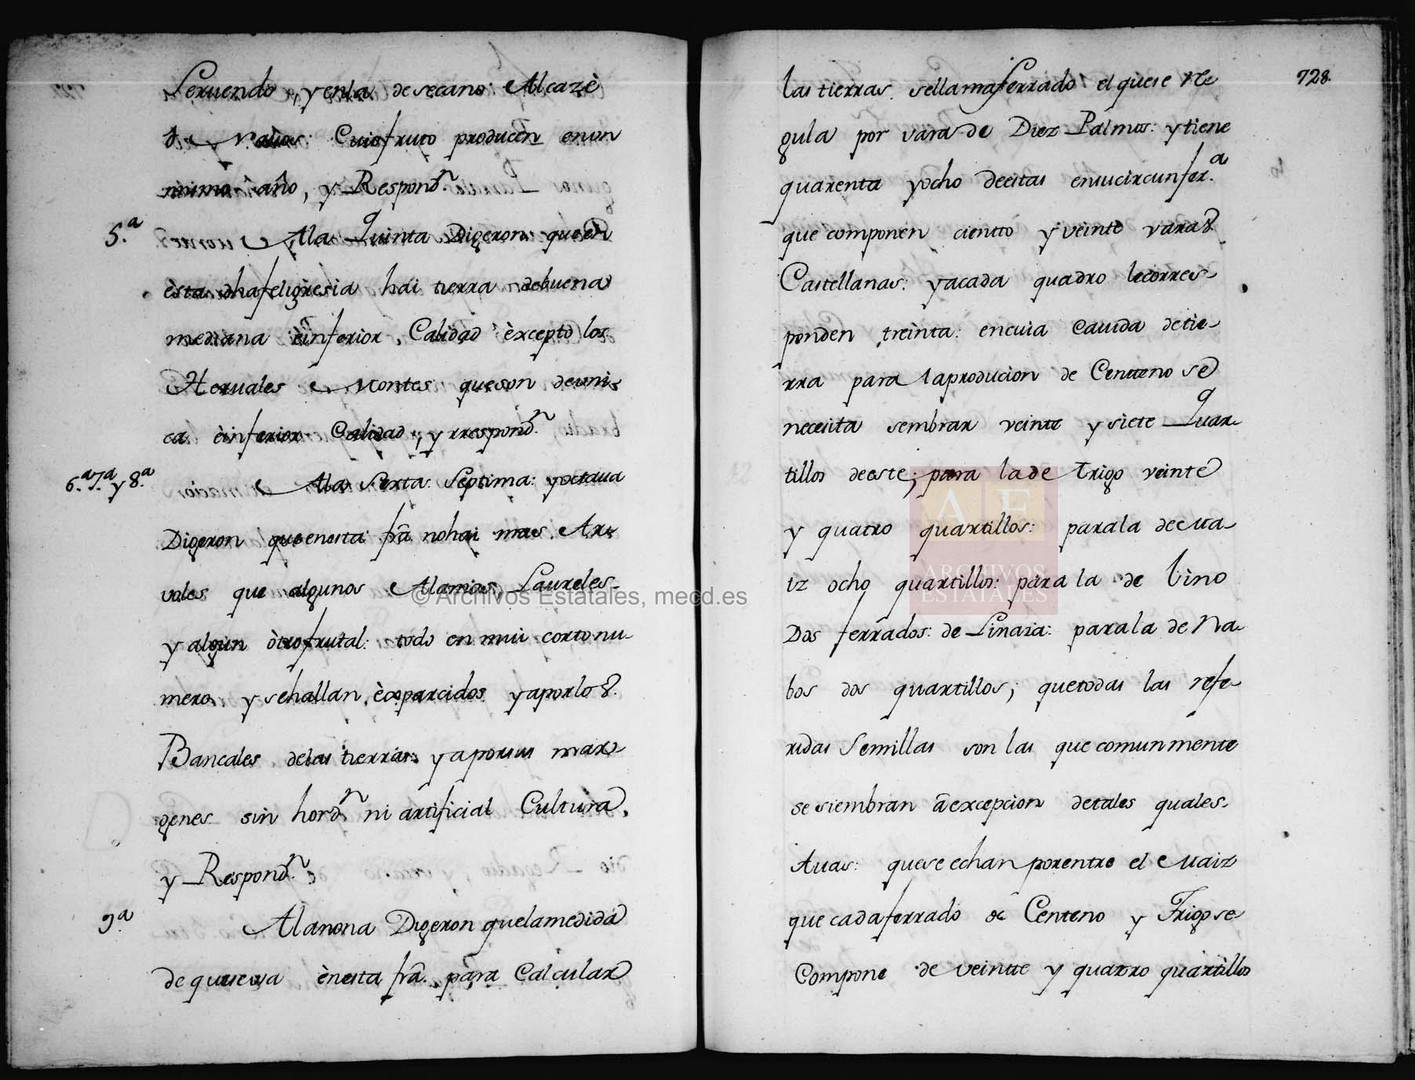 Seruendo, y enla de secano: Alcazè
Cuio fruto producen en un
mismo año, y Respond.n
5.a
Ala Quinta Digeron que en
èsta dha feligresia hai tierra de buena
mediana è inferior, Calidad èxcepto los
Heruales e Montes que son de uni-
ca è inferior Calidad, y rrespond.n
6.a 7.a y 8.a
Ala Sexta Septima: y octaua
Digeron que en esta fra no hai mas Ar-
uoles que algunos Alamos, Laureles
y algun òtro frutal: todo en mui corto nu-
mero y se hallan, èsparcidos y a por los
Bancales de las tierras, y a por sus mar-
genes sin hord.n ni artificial Cultura,
y Respond.n;
9.a
Ala nona Digeron que la medida
de que se usa ènesta fra. para Calcular
728.
las tierras se llama ferrado el que se Re-
gula por vara de Diez Palmos: y tiene
quarenta y ocho de estas en su circunfer.a
que componen ciento y veinte varas
Castellanas: y a cada quadro le corres-
ponden treinta: en cuia cauida de tie-
rra para la producion de Centeno se
necesita sembrar veinte y siete Quar-
tillos de este; para la de Trigo veinte
y quatro quartillos: para la de Ma-
iz ocho quartillos: para la de Lino
Dos ferrados: de Linaza: para la de Na-
bos dos quartillos; que todas las refe-
ridas Semillas son las que comunmente
se siembran à excepcion de tales quales
Auas: que se echan por entre el Maiz
que cada ferrado de Centeno y Trigo se
Compone de veinte y quatro quartillos
© Archivos Estatales, mecd.es
AE
ARCHIVOS
ESTATALES